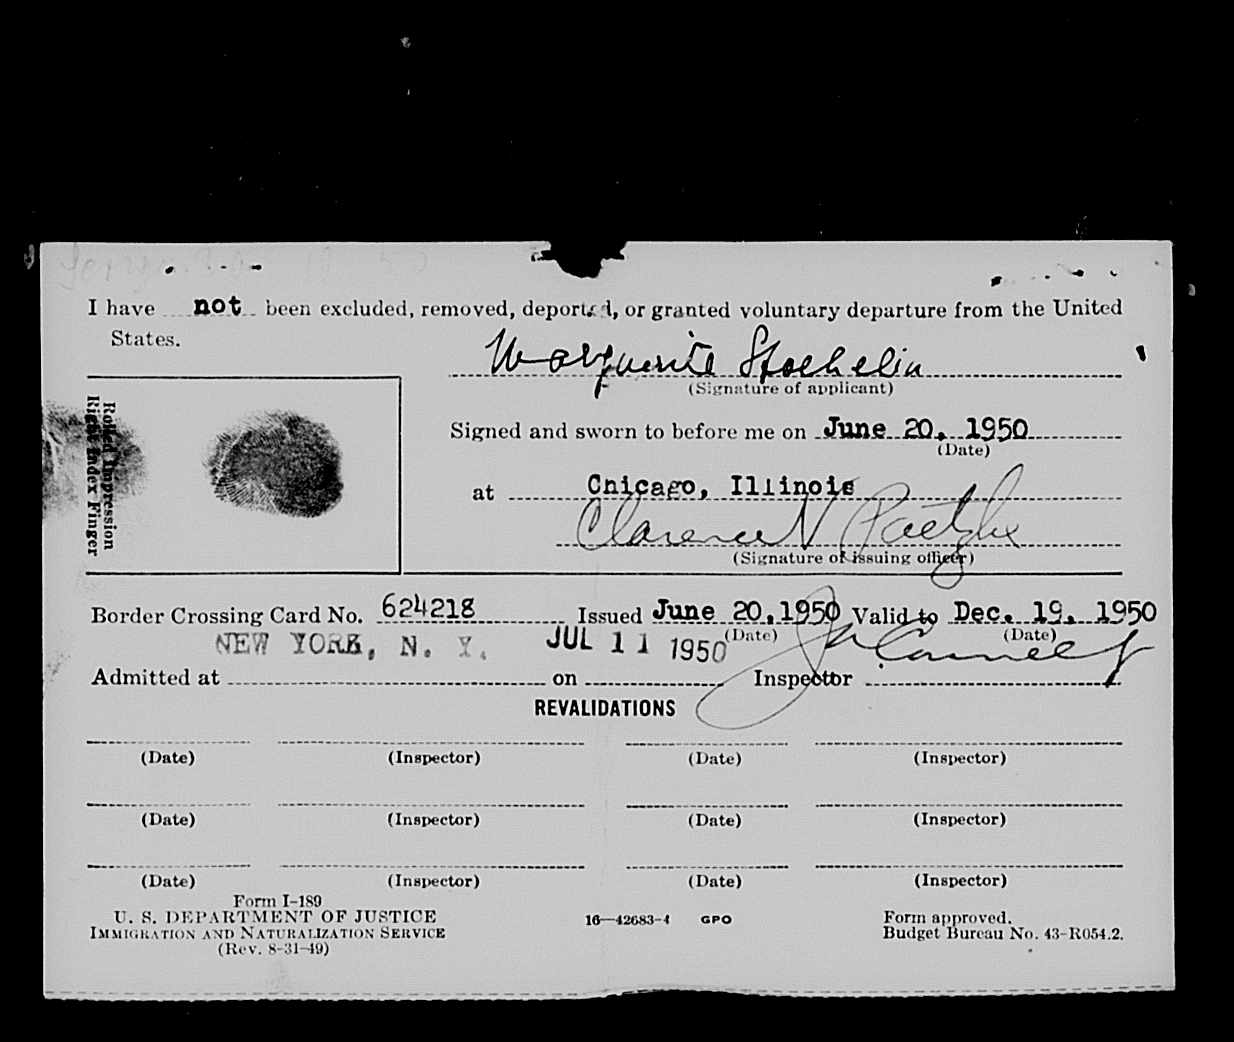 I have not been excluded, removed, deported, or granted voluntary departure from the United
States.
Marguerite Staehelin
(Signature of applicant)
Rolled Impression
Right Index Finger
Signed and sworn to before me on June 20, 1950
(Date)
at Chicago, Illinois
Clarence N
(Signature of issuing officer)
Border Crossing Card No. 624218 Issued June 20, 1950 Valid to Dec. 19, 1950
(Date) (Date)
NEW YORK, N. Y. JUL 11 1950
Admitted at on Inspector
REVALIDATIONS
(Date) (Inspector) (Date) (Inspector)
(Date) (Inspector) (Date) (Inspector)
(Date) (Inspector) (Date) (Inspector)
Form I-189
U. S. DEPARTMENT OF JUSTICE
IMMIGRATION AND NATURALIZATION SERVICE
(Rev. 8-31-49)
16—42683-4 GPO
Form approved.
Budget Bureau No. 43-R054.2.